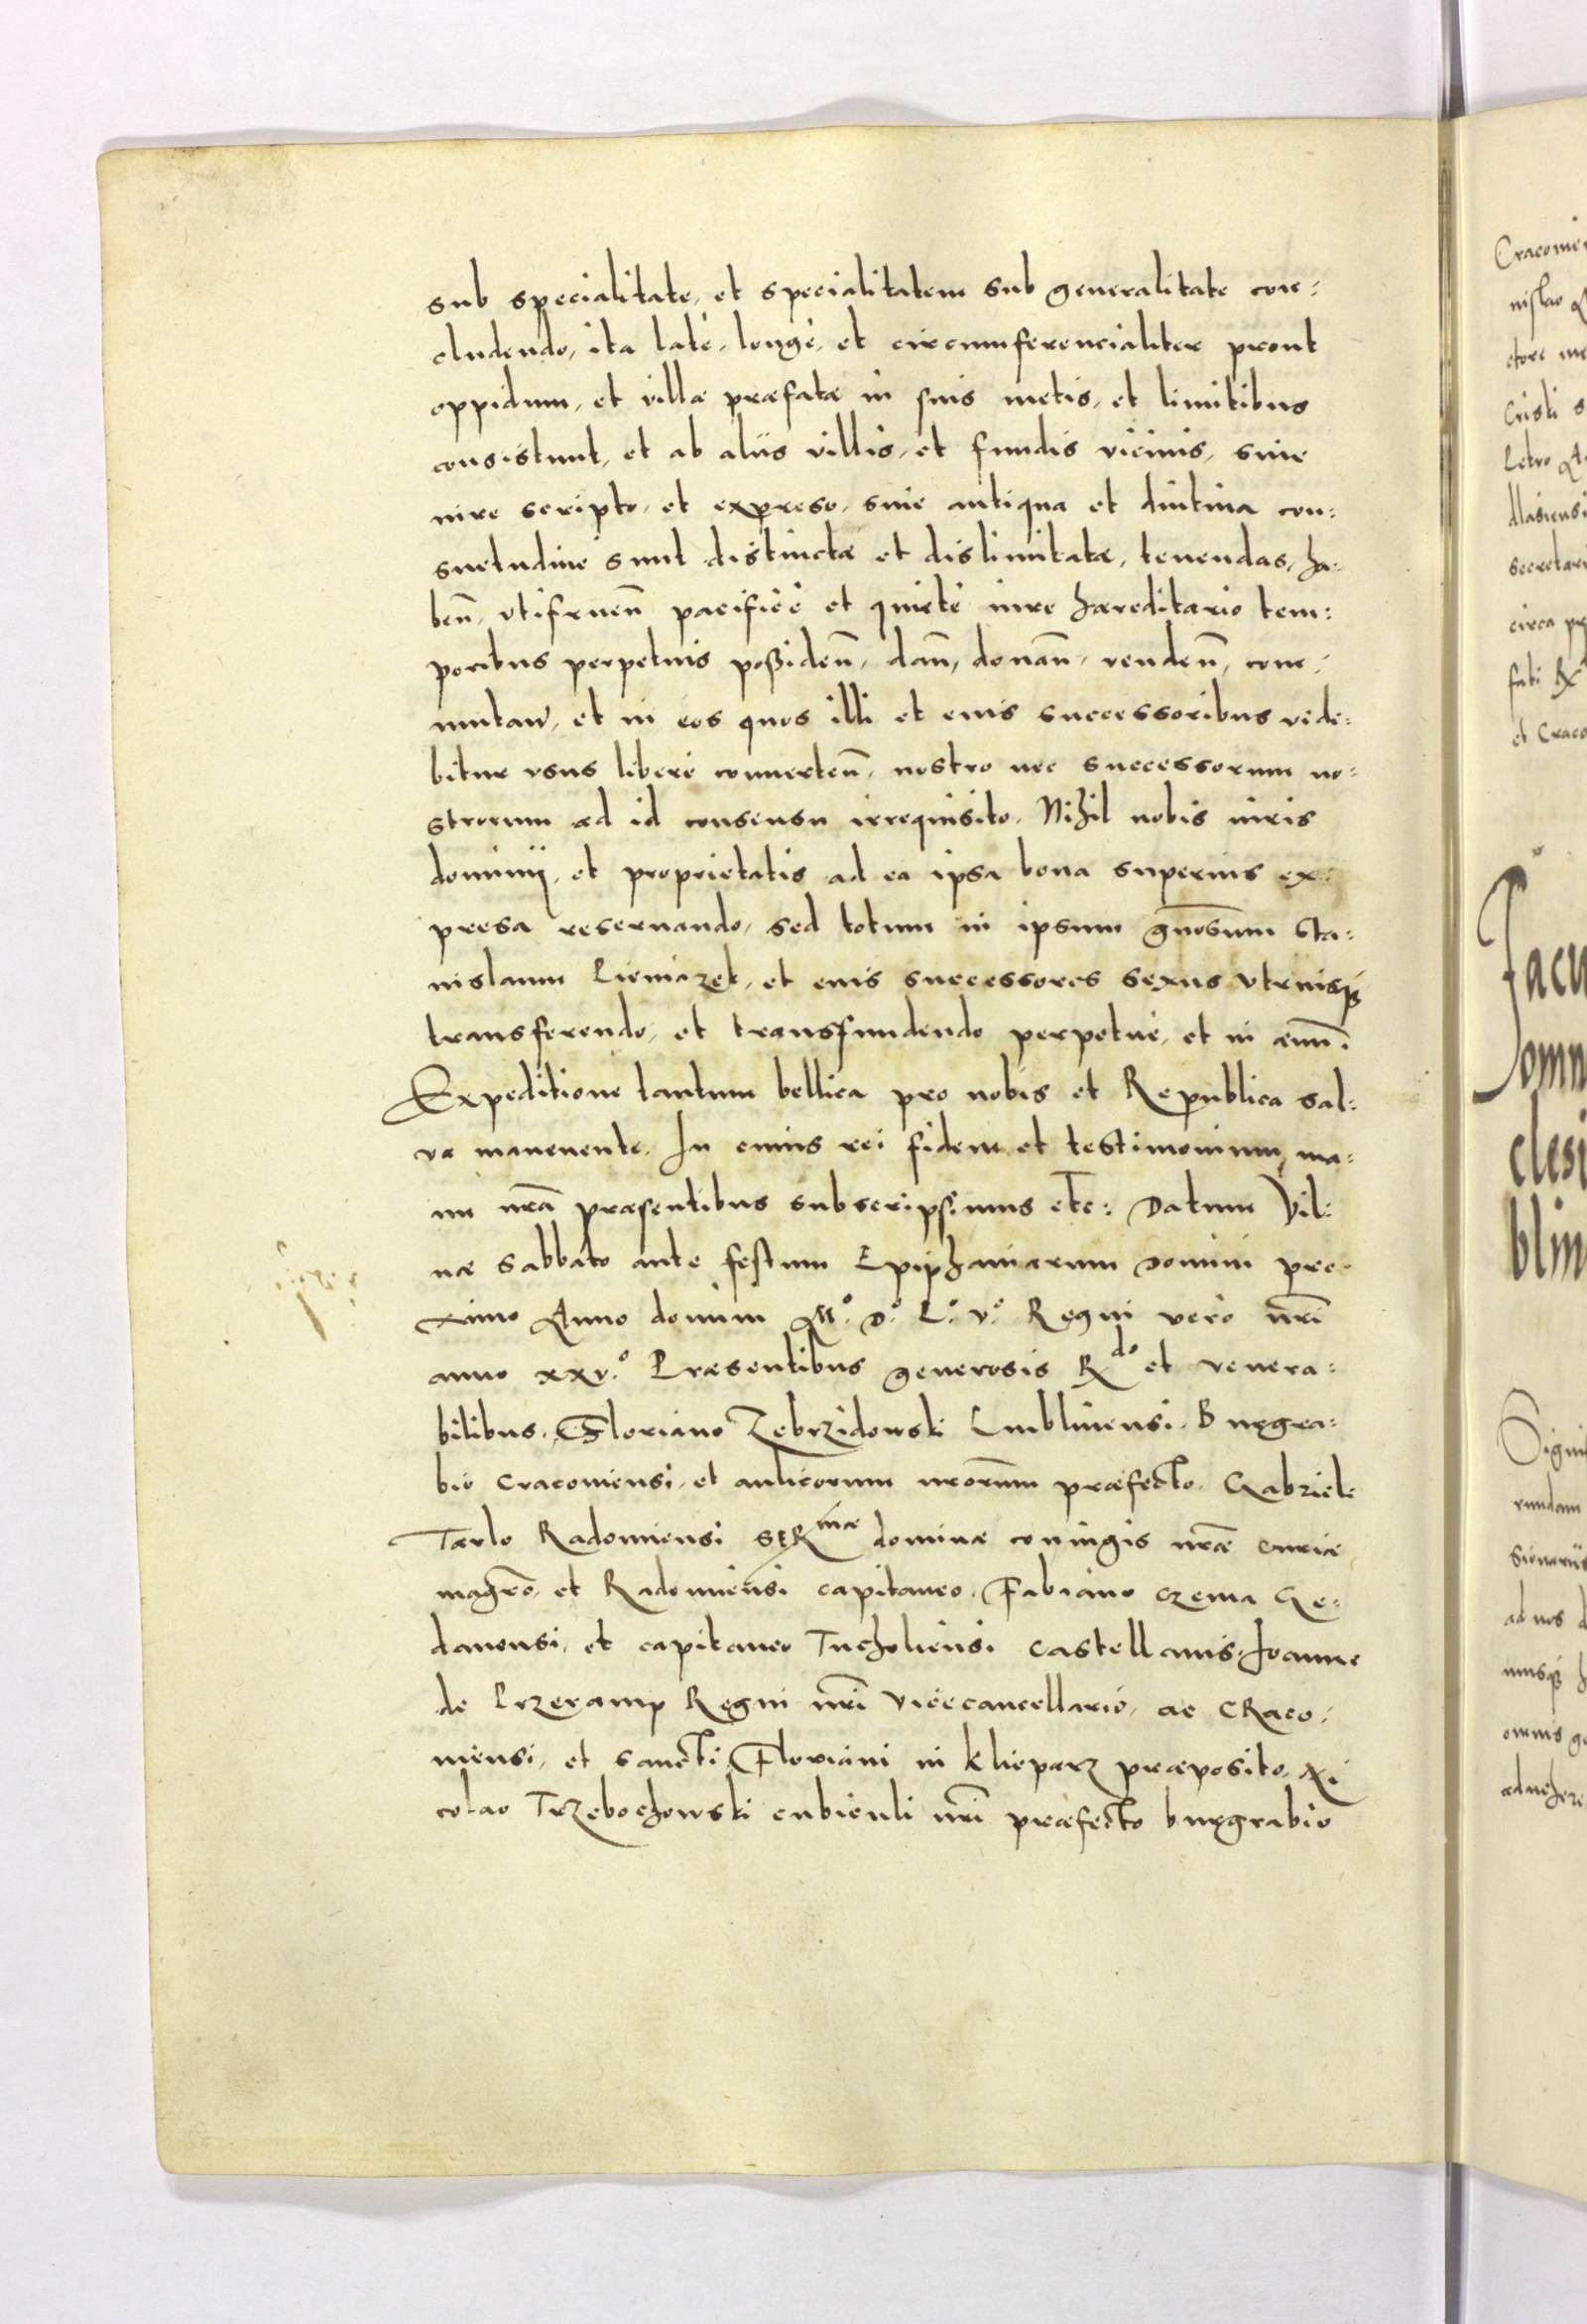 sub specialitate, et specialitatem sub generalitate con:
cludendo, ita latè, longè, et circumferencialiter prout
oppidum, et villæ præfatæ in suis metis, et limitibus
consistunt, et ab aliis villis, et fundis vicinis, siue
iure scripto, et expreso, siue antiqua et diutina con:
suetudine sunt distinctæ et dislimitatæ, tenendas, ha:
beñ, vtifrueñ pacificè et quietè iure hæreditario tem:
poribus perpetuis poßideñ, dañ, donañ, vendeñ, com:
mutañ, et in eos quos illi et euis successoribus vide:
bitur vsus liberè conuerteñ, nostro nec successorum no:
strorum ad id consensu irrequisito. Nihil nobis iuris
dominij, et proprietatis ad ea ipsa bona superius ex:
presa reseruando, sed totum in ipsum gnosum Sta:
nislaum Pieniazek, et euis successores sexus vtriusq3
transferendo, et transfundendo perpetuè, et in æuum.
Expeditione tantum bellica pro nobis et Republica sal:
va manenente. In cuius rei fidem et testimonium, ma:
nu nrã præsentibus subscripsimus etc: Datum Vil:
næ Sabbato ante festum Epiphaniarum Domini pro:
ximo Anno domini M.º D.º L.º V.º Regni verò nrĩ
anno xxv.º Præsentibus generosis Rdo et venera:
bilibus, Floriano Zebrzidowski Lublinensi, Burgra:
bio Cracouiensi, et aulicorum nrorum præfecto. Gabriele
Tarlo Radomiensi SERmæ dominæ coniugis nræ curiæ
magro, et Radomiensi capitaneo. Fabiano Czema Ge:
danensi, et capitaneo Tucholiensi Castellanis. Joanne
de Przeramp Regni nrĩ Vicecancellario, ac CRaco:
uiensi, et Sancti Floriani in Klieparz præposito. Ni
colao Trzebochowski cubiculi nrĩ præfecto burgrabio